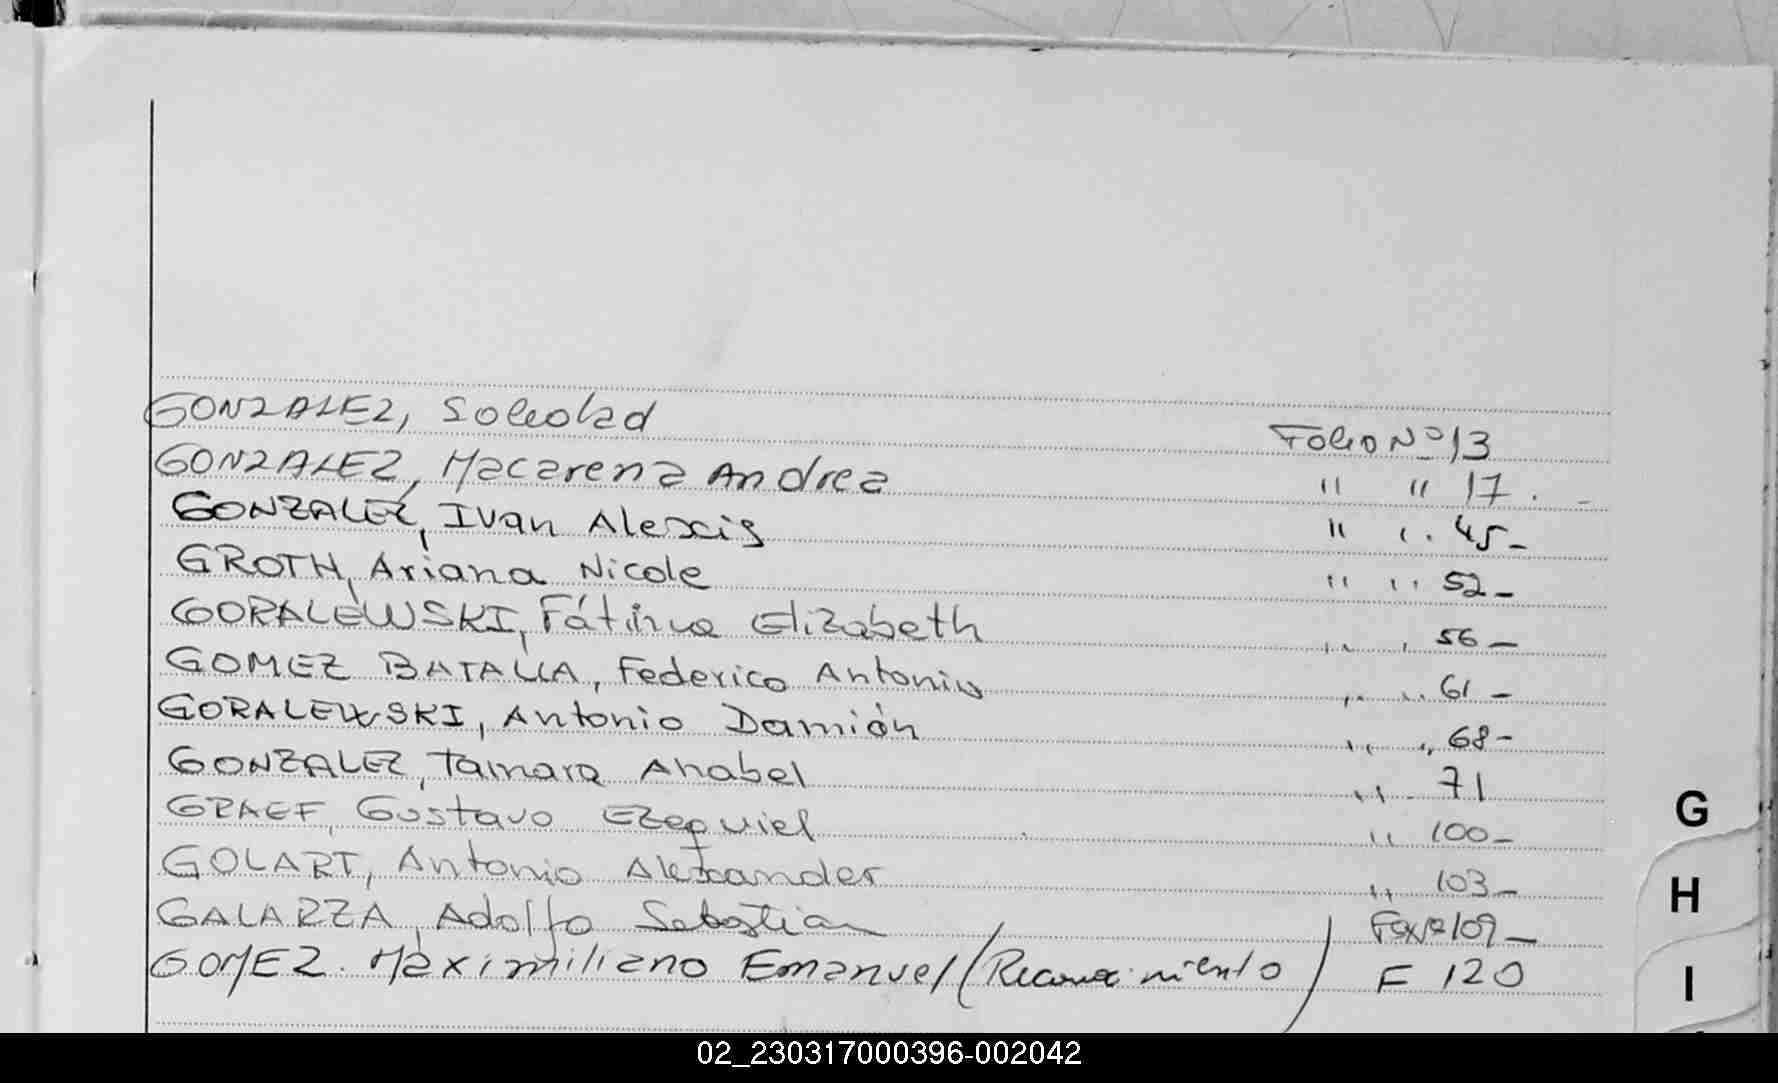 GONZALEZ, Soledad Folio Nº 13
GONZALEZ, Macarena Andrea " " 17.-
GONZALEZ, Ivan Alexis " " 45-
GROTH, Ariana Nicole " " 52-
GORALEWSKI, Fátima Elizabeth " " 56-
GOMEZ BATALLA, Federico Antonio " " 61-
GORALEWSKI, Antonio Damián " " 68-
GONZALEZ, Tamara Anabel " " 71
GRAEF, Gustavo Ezequiel " 100-
GOLART, Antonio Alexander " 103-
GALARZA, Adolfo Sebastian Fº Nº 109-
GOMEZ. Maximiliano Emanuel (Reconocimiento) F 120
G
H
I
02_230317000396-002042